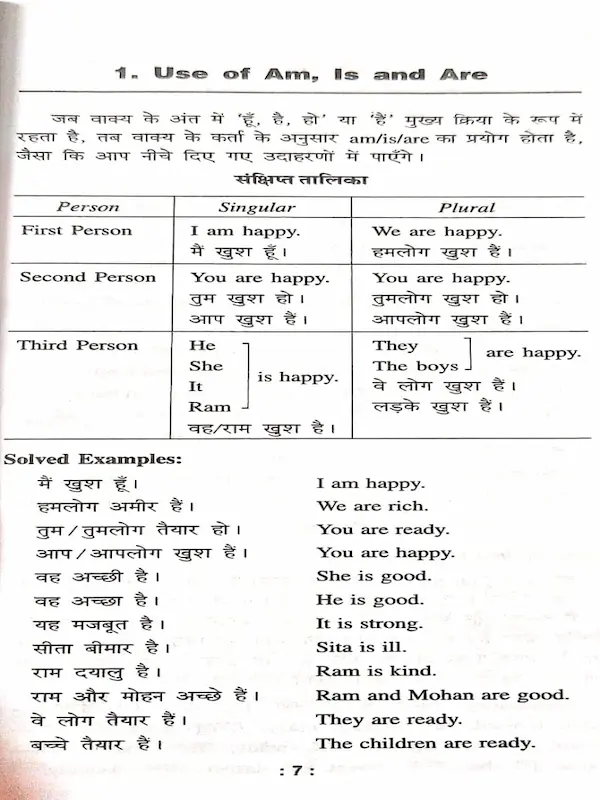 1. Use of Am, Is and Are
जब वाक्य के अंत में 'हूँ, है, हो' या 'हैं' मुख्य क्रिया के रूप में
रहता है, तब वाक्य के कर्ता के अनुसार am/is/are का प्रयोग होता है,
जैसा कि आप नीचे दिए गए उदाहरणों में पाएँगे।
संक्षिप्त तालिका
Person Singular Plural
First Person I am happy. We are happy.
मैं खुश हूँ। हमलोग खुश हैं।
Second Person You are happy. You are happy.
तुम खुश हो। तुमलोग खुश हो।
आप खुश हैं। आपलोग खुश हैं।
Third Person He They
She The boys are happy.
It is happy. वे लोग खुश हैं।
Ram लड़के खुश हैं।
वह/राम खुश है।
Solved Examples:
मैं खुश हूँ। I am happy.
हमलोग अमीर हैं। We are rich.
तुम/तुमलोग तैयार हो। You are ready.
आप/आपलोग खुश हैं। You are happy.
वह अच्छी है। She is good.
वह अच्छा है। He is good.
यह मजबूत है। It is strong.
सीता बीमार है। Sita is ill.
राम दयालु है। Ram is kind.
राम और मोहन अच्छे हैं। Ram and Mohan are good.
वे लोग तैयार हैं। They are ready.
बच्चे तैयार हैं। The children are ready.
: 7 :